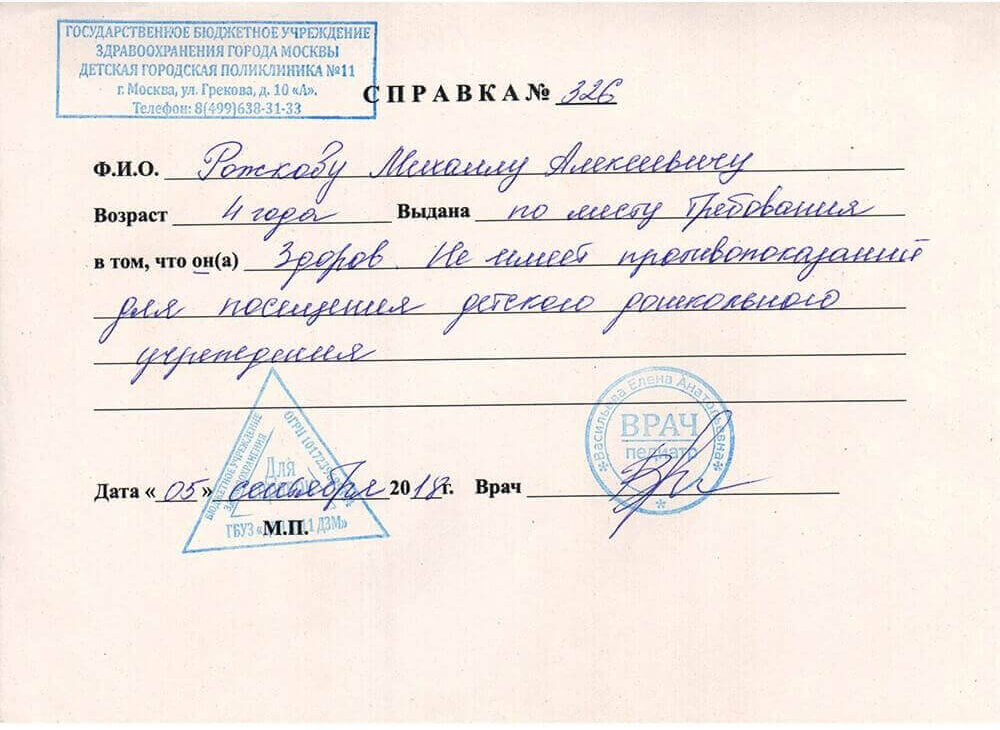 ГОСУДАРСТВЕННОЕ БЮДЖЕТНОЕ УЧРЕЖДЕНИЕ
ЗДРАВООХРАНЕНИЯ ГОРОДА МОСКВЫ
ДЕТСКАЯ ГОРОДСКАЯ ПОЛИКЛИНИКА №11
г. Москва, ул. Грекова, д. 10 «А».
Телефон: 8(499)638-31-33
СПРАВКА № 326
Ф.И.О. Рожкову Михаилу Алексеевичу
Возраст 4 года Выдана по месту требования
в том, что он(а) Здоров. Не имеет противопоказаний
для посещения детского дошкольного
учреждения
Васильева Елена Анатольевна
ВРАЧ
педиатр
БЮДЖЕТНОЕ УЧРЕЖДЕНИЕ
ЗДРАВООХРАНЕНИЯ
ОГРН
Для
Дата « 05 » сентября 2018 г. Врач
ГБУЗ « ДЗМ»
М.П.